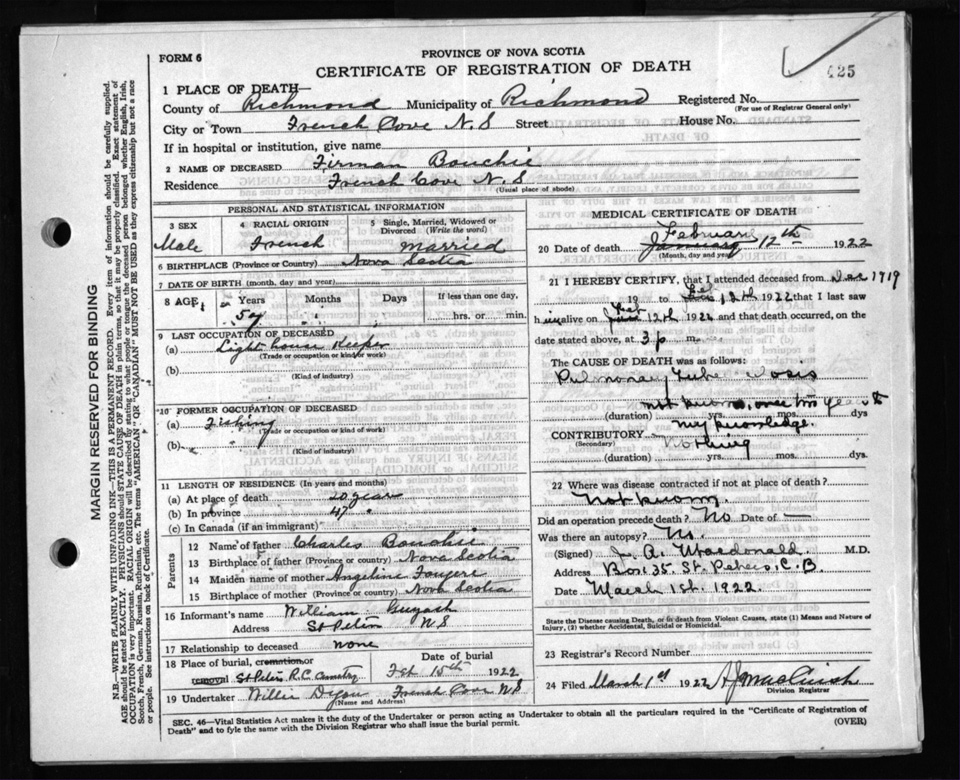 FORM 6
PROVINCE OF NOVA SCOTIA
CERTIFICATE OF REGISTRATION OF DEATH
425
MARGIN RESERVED FOR BINDING
N.B.—WRITE PLAINLY WITH UNFADING INK—THIS IS A PERMANENT RECORD. Every item of information should be carefully supplied.
AGE should be stated EXACTLY. PHYSICIANS should STATE CAUSE OF DEATH in plain terms, so that it may be properly classified. Exact statement of
OCCUPATION is very important. RACIAL ORIGIN will be described by stating to what people or tongue the deceased person belonged whether English, Irish,
Scotch, French, German, Russian, Ruthenian, etc. The terms "AMERICAN" OR "CANADIAN" MUST NOT BE USED as they express citizenship but not a race
or people. See instructions on back of Certificate.
1 PLACE OF DEATH—
County of Richmond Municipality of Richmond Registered No.
(For use of Registrar General only)
City or Town French Cove N.S Street House No.
If in hospital or institution, give name
2 NAME OF DECEASED Firman Bouchie
Residence French Cove N.S
(Usual place of abode)
PERSONAL AND STATISTICAL INFORMATION
3 SEX 4 RACIAL ORIGIN 5 Single, Married, Widowed or Divorced (Write the word)
Male French married
6 BIRTHPLACE (Province or Country) Nova Scotia
7 DATE OF BIRTH (month, day and year)
8 AGE Years Months Days If less than one day,
hrs. or min.
9 LAST OCCUPATION OF DECEASED
(a) Light house Keeper
(Trade or occupation or kind of work)
(b)
(Kind of industry)
10 FORMER OCCUPATION OF DECEASED
(a) Fishing
(Trade or occupation or kind of work)
(b)
(Kind of industry)
11 LENGTH OF RESIDENCE (In years and months)
(a) At place of death 20 years
(b) In province 47 "
(c) In Canada (if an immigrant)
Parents
12 Name of father Charles Bouchie
13 Birthplace of father (Province or country) Nova Scotia
14 Maiden name of mother Angeline Foujere
15 Birthplace of mother (Province or country) Nova Scotia
16 Informant's name William
Address St Peters NS
17 Relationship to deceased none
18 Place of burial, cremation or removal St Peters R.C. Cemetry
Date of burial Feb 15th 1922
19 Undertaker Willie French Cove NS
(Name and Address)
MEDICAL CERTIFICATE OF DEATH
February
20 Date of death January 12th 1922
(Month, day and year)
21 I HEREBY CERTIFY, that I attended deceased from Dec 1919
19 to Feb 12th 1922 that I last saw
h im alive on Feb 12th 1922 and that death occurred, on
date stated above, at 3 p m.
The CAUSE OF DEATH was as follows:
Pulmonary Tuberculosis
not known, over two years to
(duration) yrs. mos. dys
my knowledge.
CONTRIBUTORY Nothing
(Secondary)
(duration) yrs. mos. dys.
22 Where was disease contracted if not at place of death?
Not known.
Did an operation precede death? No Date of —
Was there an autopsy? No.
(Signed) J. A. Macdonald. M.D.
Address Box 35. St. Peters, C.B
Date March 1st. 1922.
State the Disease causing Death, or in death from Violent Causes, state (1) Means and Nature of
Injury, (2) whether Accidental, Suicidal or Homicidal.
23 Registrar's Record Number
24 Filed March 1st 1922
Division Registrar
SEC. 46—Vital Statistics Act makes it the duty of the Undertaker or person acting as Undertaker to obtain all the particulars required in the "Certificate of Registration of
Death" and to fyle the same with the Division Registrar who shall issue the burial permit.
(OVER)